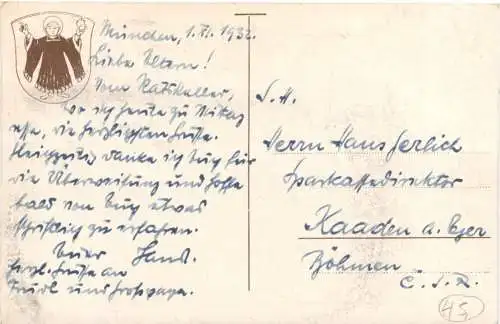 München, 1.XI.1932.
Liebe Eltern!
Vom Ratskeller,
wo ich heute zu Mittag
esse, die herzlichsten Grüsse.
Gleichzeitig danke ich Euch für
die Überweisung und hoffe
bald von Euch etwas
schriftlich zu erfahren.
Euer Hans.
Herzl. Grüsse an
Trudl und Grosspapa.
S. H.
Herrn Hans Gerlich
Sparkassedirektor
Kaaden a. Eger
Böhmen
Č.S.R.
45